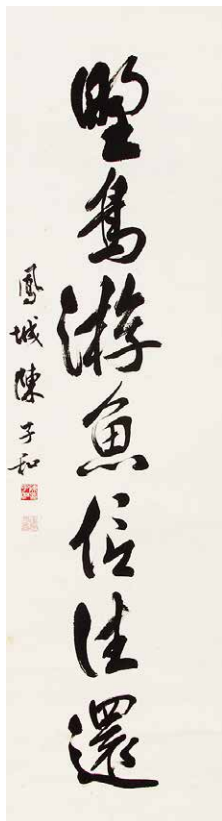 野鳥游魚信往還
鳳城陳子和